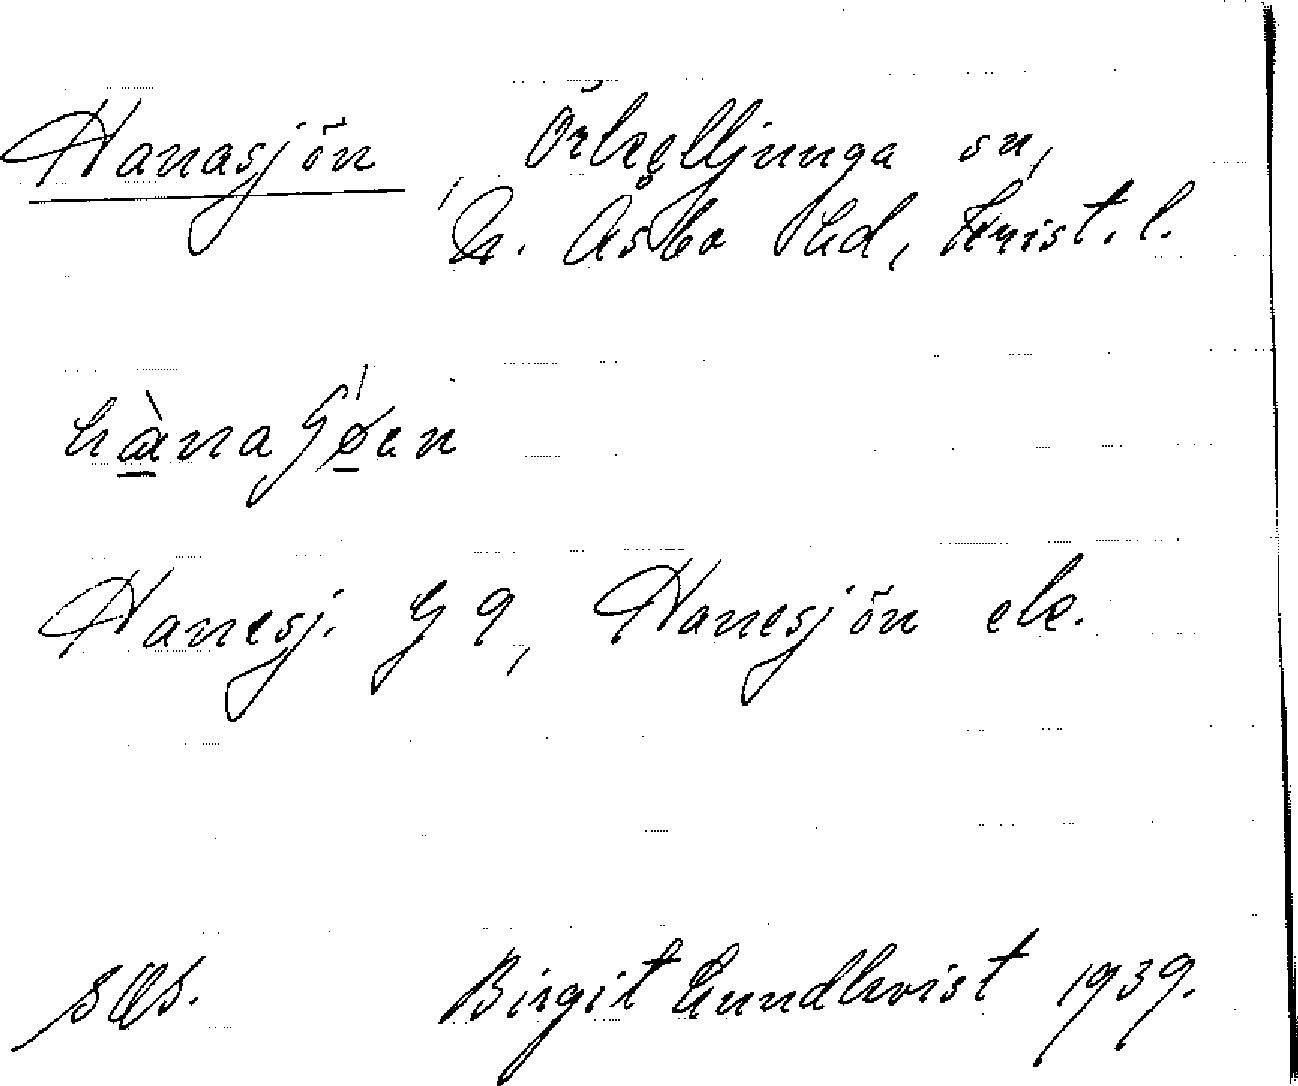 Hanasjön, Örkelljunga sn,
N. Åsbo hd, Krist. l.
hànaʃøen
Hanesj. G 9, Hanesjön ek.
Birgit Lundkvist 1939.